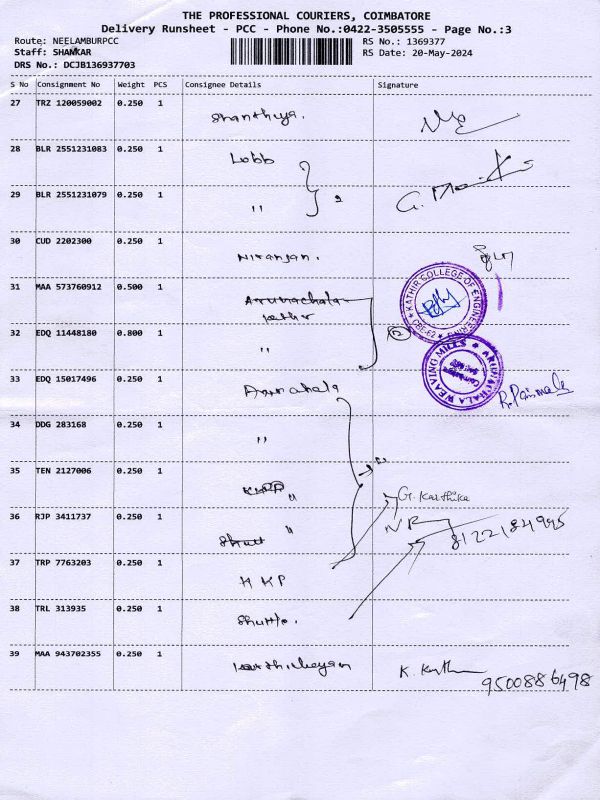 THE PROFESSIONAL COURIERS, COIMBATORE
Delivery Runsheet - PCC - Phone No.:0422-3505555 - Page No.:3
Route: NEELAMBURPCC
RS No.: 1369377
Staff: SHANKAR
RS Date: 20-May-2024
DRS No.: DCJB136937703
S No Consignment No Weight PCS Consignee Details Signature
27 TRZ 120059002 0.250 1 Shanthiya.
28 BLR 2551231083 0.250 1 Lobb
29 BLR 2551231079 0.250 1 " 2
30 CUD 2202300 0.250 1 Niranjan.
31 MAA 573760912 0.500 1 Arunachala
KATHIR COLLEGE OF ENGINEERING CBE-62
32 EDQ 11448180 0.800 1 " 2
ARUNACHALA WEAVING MILLS
33 EDQ 15017496 0.250 1
34 DDG 283168 0.250 1 "
35 TEN 2127006 0.250 1 "
G. Karthika
36 RJP 3411737 0.250 1 "
8122184995
37 TRP 7763203 0.250 1 HKP
38 TRL 313935 0.250 1 Shuttle.
39 MAA 943702355 0.250 1 karthikeyan
9500886498